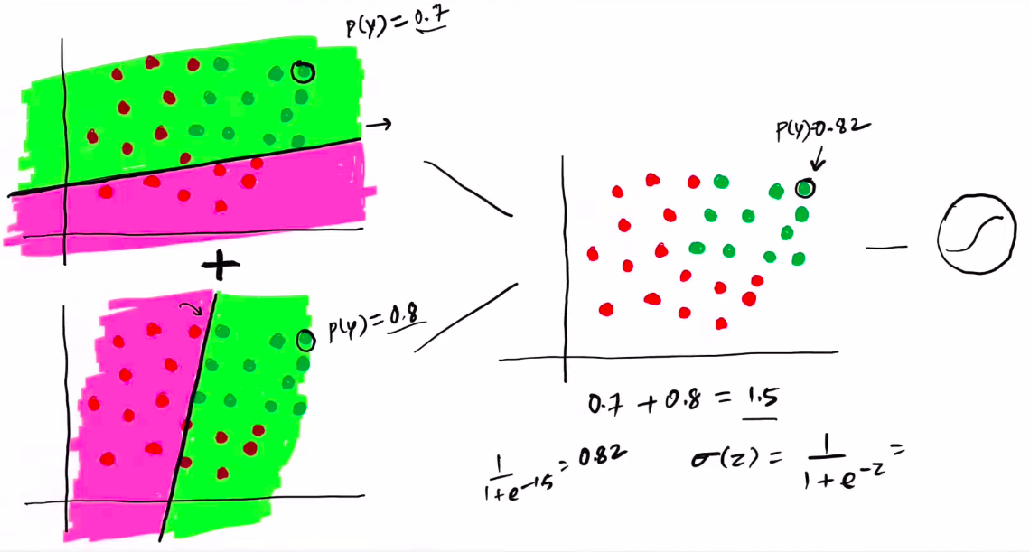 P(y) = 0.7
+
P(y) = 0.8
P(y)=0.82
0.7 + 0.8 = 1.5
1/1+e^-1.5 = 0.82
σ(z) = 1/1+e^-z =